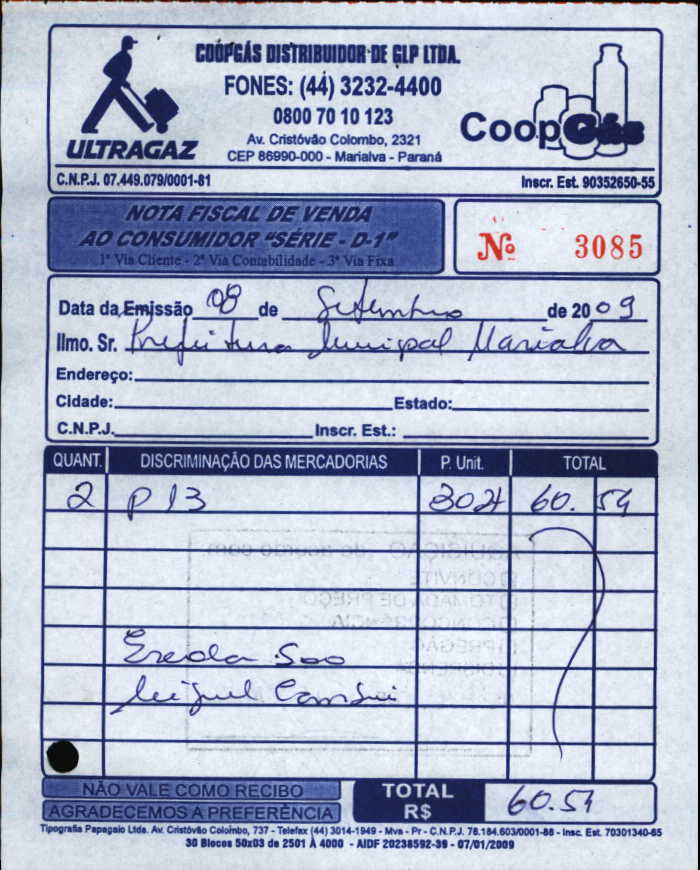 COOPGÁS DISTRIBUIDOR DE GLP LTDA.
FONES: (44) 3232-4400
0800 70 10 123
Av. Cristóvão Colombo, 2321
CEP 86990-000 - Marialva - Paraná
ULTRAGAZ
CoopGás
C.N.P.J. 07.449.079/0001-81
Inscr. Est. 90352650-55
NOTA FISCAL DE VENDA
AO CONSUMIDOR "SÉRIE - D-1"
1ª Via Cliente - 2ª Via Contabilidade - 3ª Via Fixa
Nº 3085
Data da Emissão 08 de Setembro de 2009
Ilmo. Sr. Prefeitura Municipal Marialva
Endereço:
Cidade: Estado:
C.N.P.J. Inscr. Est.:
QUANT. DISCRIMINAÇÃO DAS MERCADORIAS P. Unit. TOTAL
2 P13 3027 60.54
Escola Sao
Miguel Cambui
NÃO VALE COMO RECIBO
AGRADECEMOS A PREFERÊNCIA
TOTAL R$ 60.54
Tipografia Papagaio Ltda. Av. Cristóvão Colombo, 737 - Telefax (44) 3014-1949 - Mva - Pr - C.N.P.J. 78.184.603/0001-88 - Insc. Est. 70301340-65
30 Blocos 50x03 de 2501 À 4000 - AIDF 20238592-39 - 07/01/2009